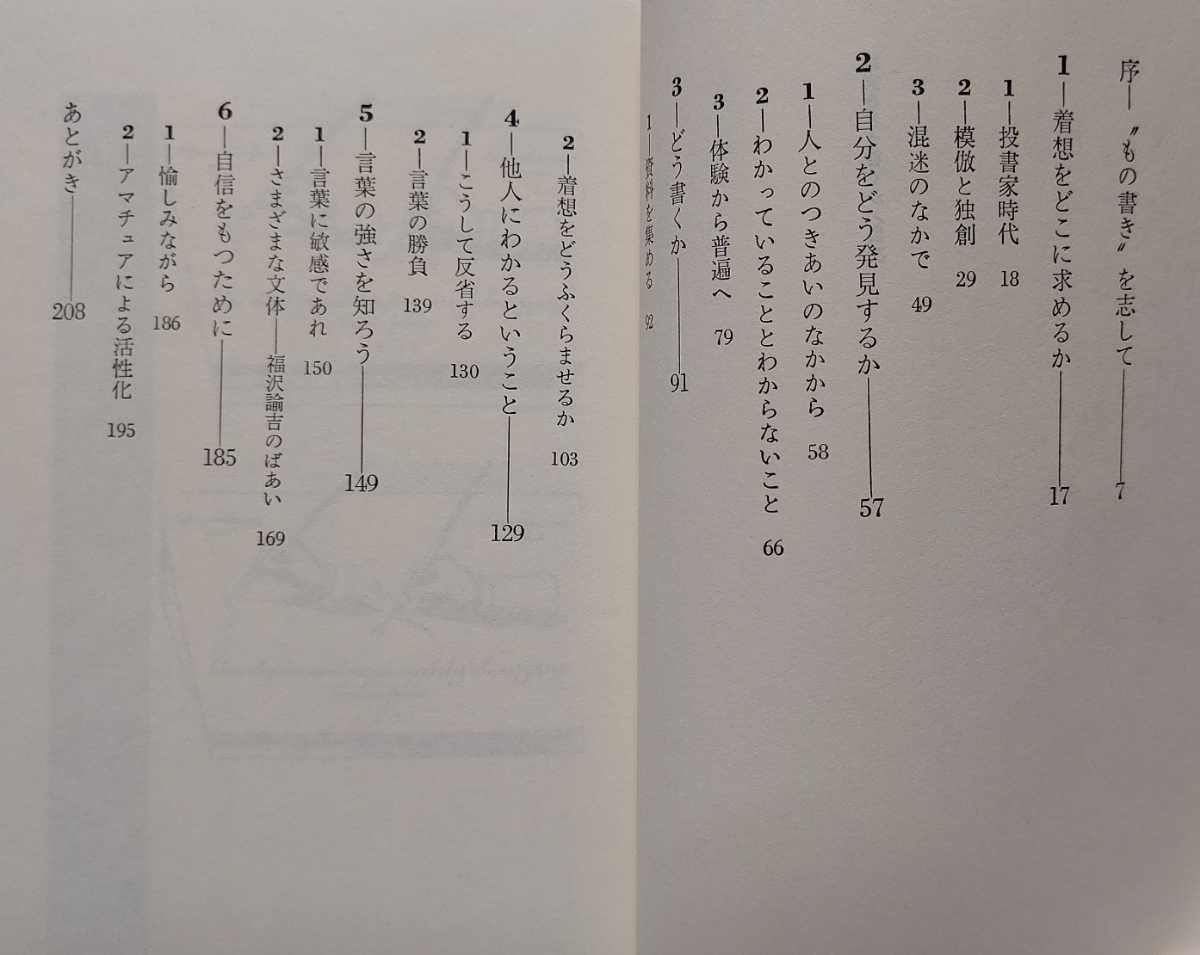 序—〝もの書き〟を志して——7
1—着想をどこに求めるか——17
1—投書家時代 18
2—模倣と独創 29
3—混迷のなかで 49
2—自分をどう発見するか——57
1—人とのつきあいのなかから 58
2—わかっていることとわからないこと 66
3—体験から普遍へ 79
3—どう書くか——91
1—資料を集める 92
2—着想をどうふくらませるか 103
4—他人にわかるということ——129
1—こうして反省する 130
2—言葉の勝負 139
5—言葉の強さを知ろう——149
1—言葉に敏感であれ 150
2—さまざまな文体——福沢諭吉のばあい 169
6—自信をもつために——185
1—愉しみながら 186
2—アマチュアによる活性化 195
あとがき——208